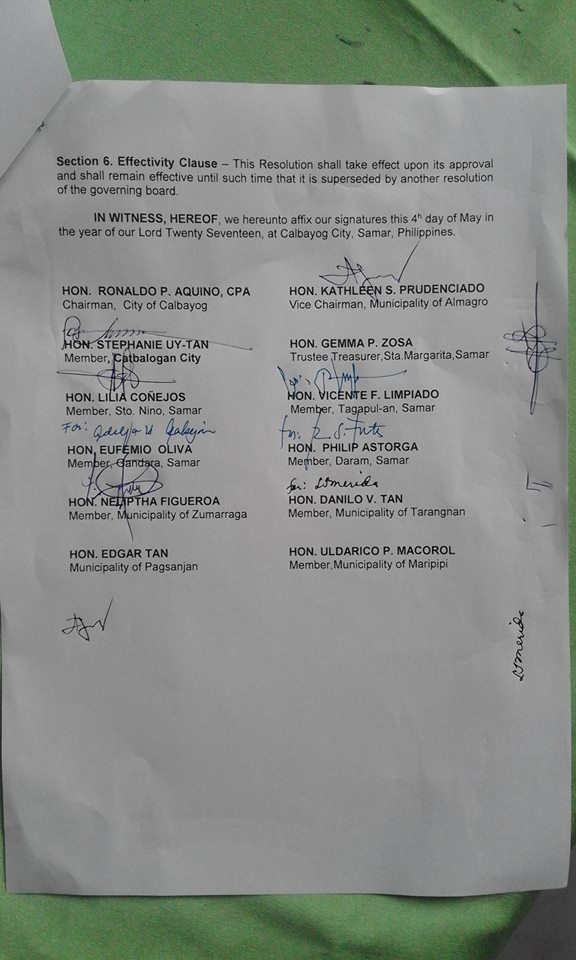 Section 6. Effectivity Clause – This Resolution shall take effect upon its approval
and shall remain effective until such time that it is superseded by another resolution
of the governing board.
IN WITNESS, HEREOF, we hereunto affix our signatures this 4ʰ day of May in
the year of our Lord Twenty Seventeen, at Calbayog City, Samar, Philippines.
HON. RONALDO P. AQUINO, CPA
Chairman, City of Calbayog
HON. KATHLEEN S. PRUDENCIADO
Vice Chairman, Municipality of Almagro
HON. STEPHANIE UY-TAN
Member, Catbalogan City
HON. GEMMA P. ZOSA
Trustee Treasurer,Sta.Margarita,Samar
HON. LILIA COÑEJOS
Member, Sto. Nino, Samar
HON. VICENTE F. LIMPIADO
Member, Tagapul-an, Samar
For:
HON. EUFEMIO OLIVA
Member, Gandara, Samar
for:
HON. PHILIP ASTORGA
Member, Daram, Samar
HON. NELIPTHA FIGUEROA
Member, Municipality of Zumarraga
for: Lomerida
HON. DANILO V. TAN
Member, Municipality of Tarangnan
HON. EDGAR TAN
Municipality of Pagsanjan
HON. ULDARICO P. MACOROL
Member,Municipality of Maripipi